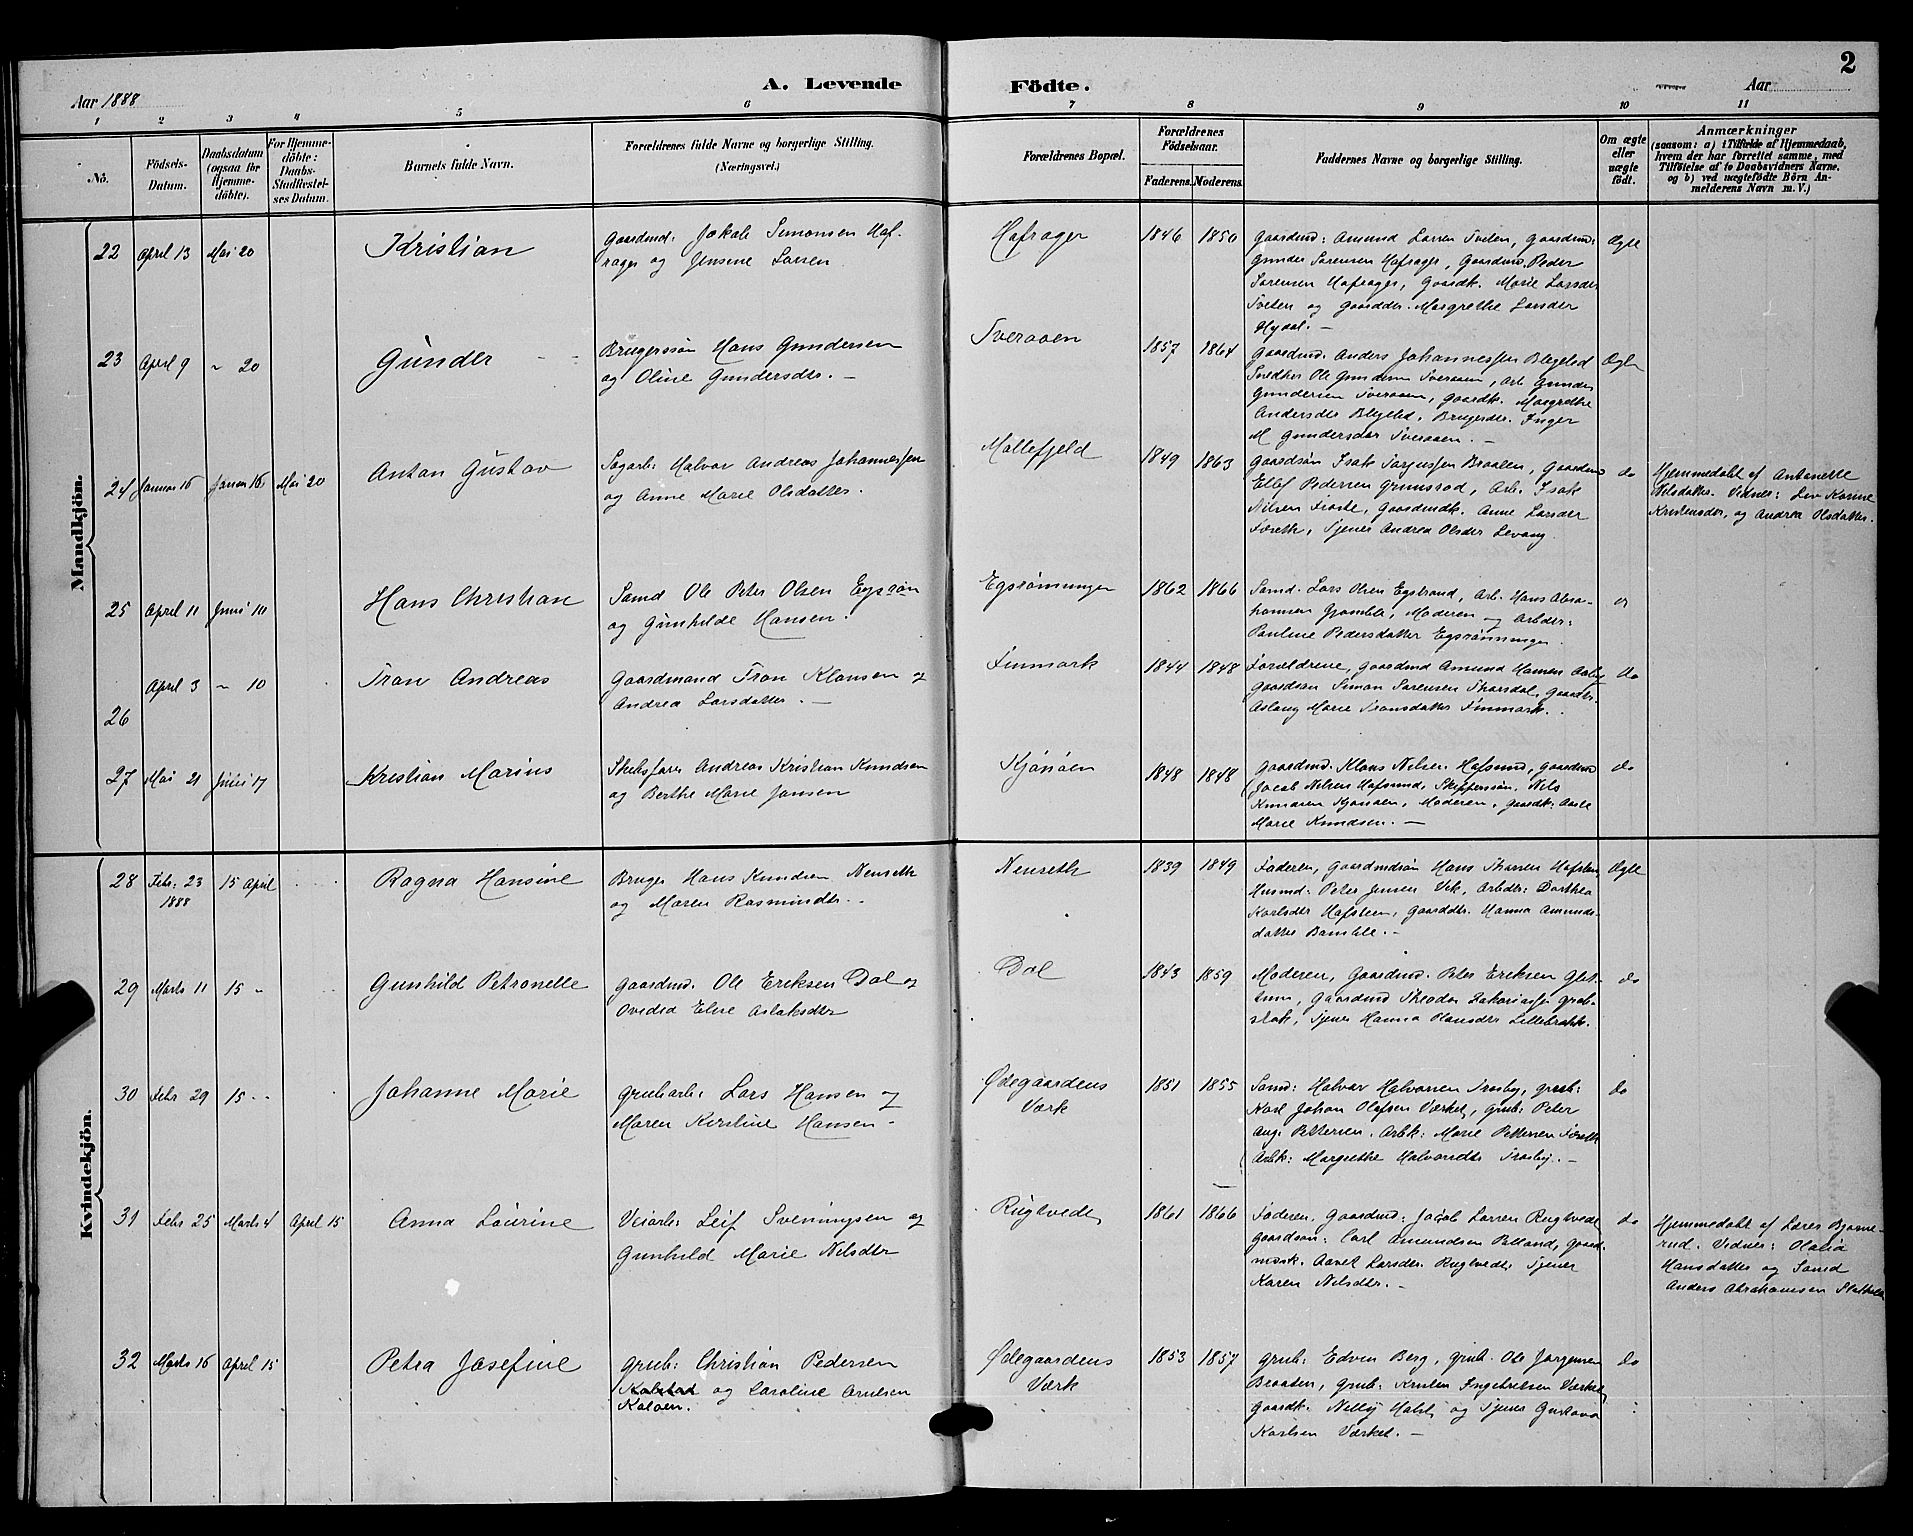 Aar 1888
A. Levende
Födte.
Aar
2
1 2 3 4 5 6 7 8 9 10 11
No.
Födsels-
Datum.
Daabsdatum
(ogsaa for
Hjemme-
döbte).
For Hjemme-
döbte:
Daabs-
Stadfæstel-
ses Datum.
Barnets fulde Navn.
Forældrenes fulde Navne og borgerlige Stilling.
(Næringsvei.)
Forældrenes Bopæl.
Forældrenes
Födselsaar.
Faderens. Moderens.
Faddernes Navne og borgerlige Stilling.
Om ægte
eller
uægte
födt.
Anmærkninger
(saasom: a) i Tilfælde af Hjemmedaab,
hvem der har forrettet samme, med
Tilföielse af to Daabsvidners Navne,
og b) ved uægtefödte Börn An-
melderens Navn m. V.)
Mandkjön.
22 April 13 Mai 20
Kristian
Gaardmd: Jakob Simonsen Haf-
rager og Jensine Larsen
Hafrager
1846 1850
Gaardmd: Amund Larsen Tveten, Gaardmd:
Gunder Sørensen Hafrager, Gaardmd. Peder
Sørensen Hafrager, Gaardk. Marie Larsdr
Tveten og Gaardder. Margrethe Larsdr
Hydal. —
Ægte
23 April 9 " 20
Gunder
Brugerssøn Hans Gundersen
og Oline Gundersdtr. —
Tveraaen
1857 1864
Gaardmd. Anders Johannesen Blegelid
Snedker Ole Gundersen Tveraaen, Arb. Gunder
Gundersen Tveraaen, Gaardk. Margrethe
Andersdr Blegelid, Brugerdr. Inger
M Gundersdtr Tveraaen. —
Ægte
24 Januar 16 Januar 16 Mai 20
Anton Gustav
Sagarb: Halvor Andreas Johannessen
og Anne Marie Olsdatter.
Mallefjeld
1849 1863
Gaardsøn Isak Torjussen Braaten, Gaardmd
Ellef Pedersen Grimsrød, Arb. Isak
Nilsen Froste, Gaardmdk. Anne Larsdr
Tjener Andrea Olsdr Levang
do
Hjemmedøbt af Antonette
Nilsdatter. Vidner: Karine
Kristensdr, og Andrea Olsdatter.
25 April 11 Juni 10
Hans Christian
Sømd Ole Peter Olsen Egsrøn
og Gunhilde Hansen.
Egsrønningen
1862 1866
Sømd. Lars Olsen Egstrand, Arb. Hans Abra-
hamsen Grømble, Moderen og Arbdr:
Pauline Pedersdatter Egsrønningen
26 April 3 " 10
Tron Andreas
Gaardmand Tron Klausen og
Andrea Larsdatter. —
Finmark
1844 1848
Forældrene, Gaardmd Amund Hansen Aaby
Gaardsøn Simon Sørensen Gaarddtr.
Aslaug Marie Tronsdatter Finmark.
do
27 Mai 21 Juni 17
Kristian Marius
Skibsfører Andreas Kristian Knudsen
og Berthe Marie Jansen
Kjønøen
1848 1848
Gaardmd. Klaus Nilsen Hafsund, Gaardmd
Jacob Nilsen Hafsund, Skipperssøn. Nils
Knudsen Kjønøen, Moderen, Gaardk:
Marie Knudsen. —
do
Kvindekjön.
28 Febr. 23 15 April
1888
Ragna Hansine
Bruger Hans Knudsen Neuseth
og Maren Rasmusdtr.
Neuseth
1839 1849
Faderen, Gaardmdsøn Hans Hafsten
Husmd: Peter Jensen Vik, Arbdr: Dorthea
Karlsdtr Hafsten, Gaarddtr. Hanna Amunds-
datter Bamble. —
Ægte
29 Marts 11 15 "
Gunhild Petronelle
Gaardmd. Ole Eriksen Dal og
Ovedia Elise Aslaksdtr
Dal
1843 1859
Moderen, Gaardmd. Peter Eriksen
Gaardmd Theodor Zakariasen Grab-
stok, Tjener Hanna Hansdtr Lillebrekk.
do
30 Febr 29 15 "
Johanne Marie
Grubarb: Lars Hansen og
Maren Kirstine Hansen
Ødegaardens
Værk
1851 1855
Sømd: Halvor Halvorsen Trosby, Grub:
Karl Johan Olafsen Værket, Grub: Peter
Aug. Pettersen. Arbk: Marie Pettersen
Arbk: Margrethe Halvorsdtr Trosby. —
do
31 Febr 25 Marts 4 April 15
Anna Lourine
Veiarb: Leif Sveningsen og
Gunhild Marie Nilsdtr
Rugtvedt
1861 1866
Faderen, Gaardmd: Jacob Larsen Rugtvedt
Gaardsøn: Carl Amundsen Gaard-
mdsk. Aavet Larsdtr. Rugtvedt, Tjener
Karen Nilsdtr. —
do
Hjemmedøbt af Lærer Bjørne-
rud. Vidner: Olalia
Hansdatter og Sømd
Anders Abrahamsen Stathelle
32 Marts 16 April 15
Petra Josefine
Grub: Christian Pedersen
og Caroline Arnesen
Kaløen.
Ødegaardens
Værk
1853 1857
Grub: Edvin Berg, Grub. Ole Jørgensen
Braaten, Grub: Kristen Ingebretsen Værket
Gaardk. Nelly Holst og Tjener Gustava
Karlsen Værket. —
do